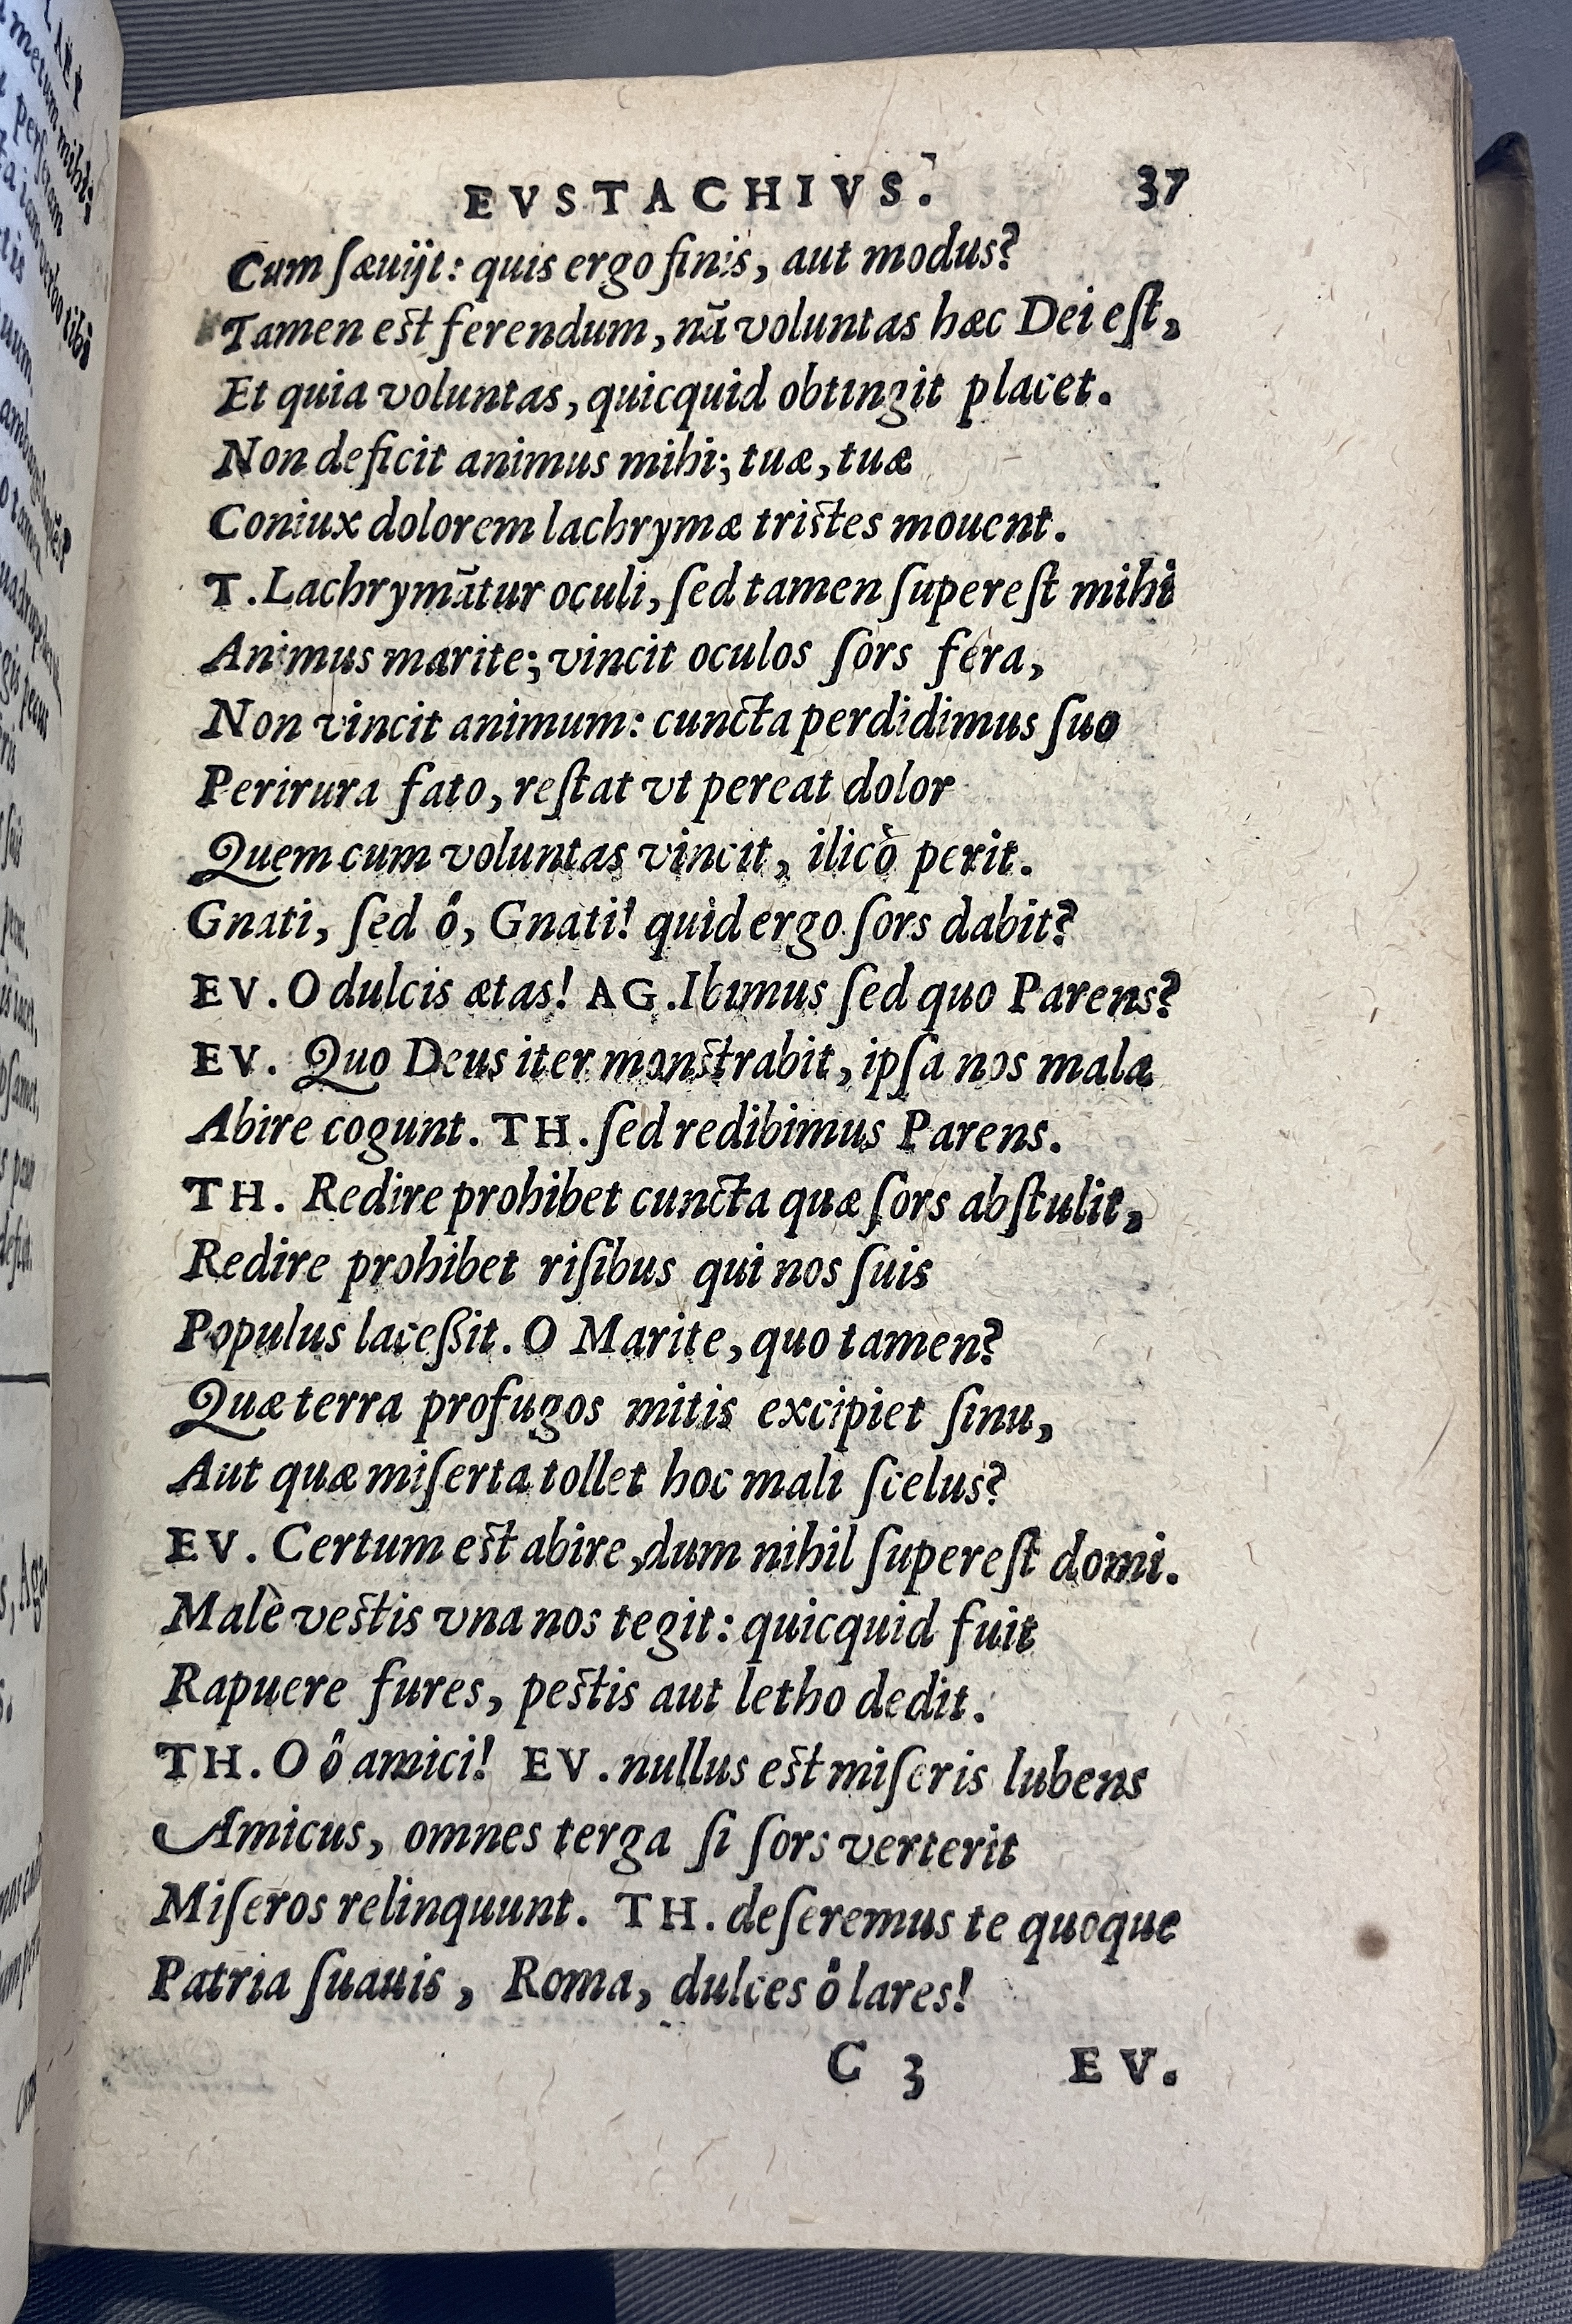 EVSTACHIVS. 37
Cum ſæuijt: quis ergo finis, aut modus?
Tamen eſt ferendum, nā voluntas hæc Dei eſt,
Et quia voluntas, quicquid obtingit placet.
Non deficit animus mihi; tuæ, tuæ
Coniux dolorem lachrymæ triſtes mouent.
T. Lachrymātur oculi, ſed tamen ſupereſt mihi
Animus marite; vincit oculos ſors fera,
Non vincit animum: cuncta perdidimus ſuo
Perirura fato, reſtat vt pereat dolor
Quem cum voluntas vincit, ilicò perit.
Gnati, ſed ô, Gnati! quid ergo ſors dabit?
EV. O dulcis ætas! AG. Ibimus ſed quo Parens?
EV. Quo Deus iter monſtrabit, ipſa nos mala
Abire cogunt. TH. ſed redibimus Parens.
TH. Redire prohibet cuncta quæ ſors abſtulit,
Redire prohibet riſibus qui nos ſuis
Populus laceßit. O Marite, quo tamen?
Quæ terra profugos mitis excipiet ſinu,
Aut quæ miſerta tollet hoc mali ſcelus?
EV. Certum eſt abire, dum nihil ſupereſt domi.
Malè veſtis vna nos tegit: quicquid fuit
Rapuere fures, peſtis aut letho dedit.
TH. O ô amici! EV. nullus eſt miſeris lubens
Amicus, omnes terga ſi ſors verterit
Miſeros relinquunt. TH. deſeremus te quoque
Patria ſuauis, Roma, dulces ô lares!
C 3 EV.